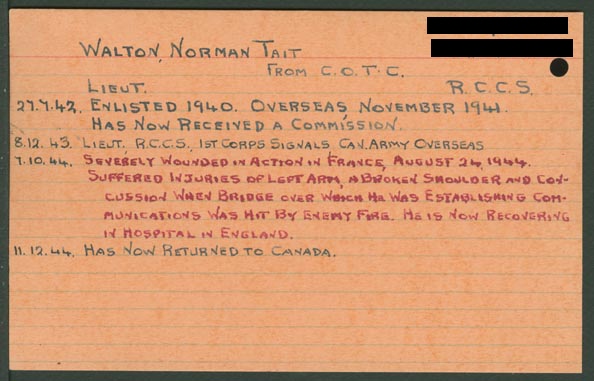 WALTON, NORMAN TAIT
FROM C.O.T.C.
LIEUT. R.C.C.S.
27.7.42. ENLISTED 1940. OVERSEAS NOVEMBER 1941.
HAS NOW RECEIVED A COMMISSION.
8.12.43. LIEUT, R.C.C.S., 1ST CORPS SIGNALS, CAN. ARMY OVERSEAS
7.10.44. SEVERELY WOUNDED IN ACTION IN FRANCE, AUGUST 24, 1944.
SUFFERED INJURIES OF LEFT ARM, A BROKEN SHOULDER AND CON-
CUSSION WHEN BRIDGE OVER WHICH HE WAS ESTABLISHING COM-
MUNICATIONS WAS HIT BY ENEMY FIRE. HE IS NOW RECOVERING
IN HOSPITAL IN ENGLAND.
11.12.44. HAS NOW RETURNED TO CANADA.